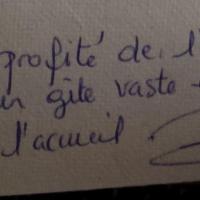 profité de l'
n gîte vaste
l'accueil.